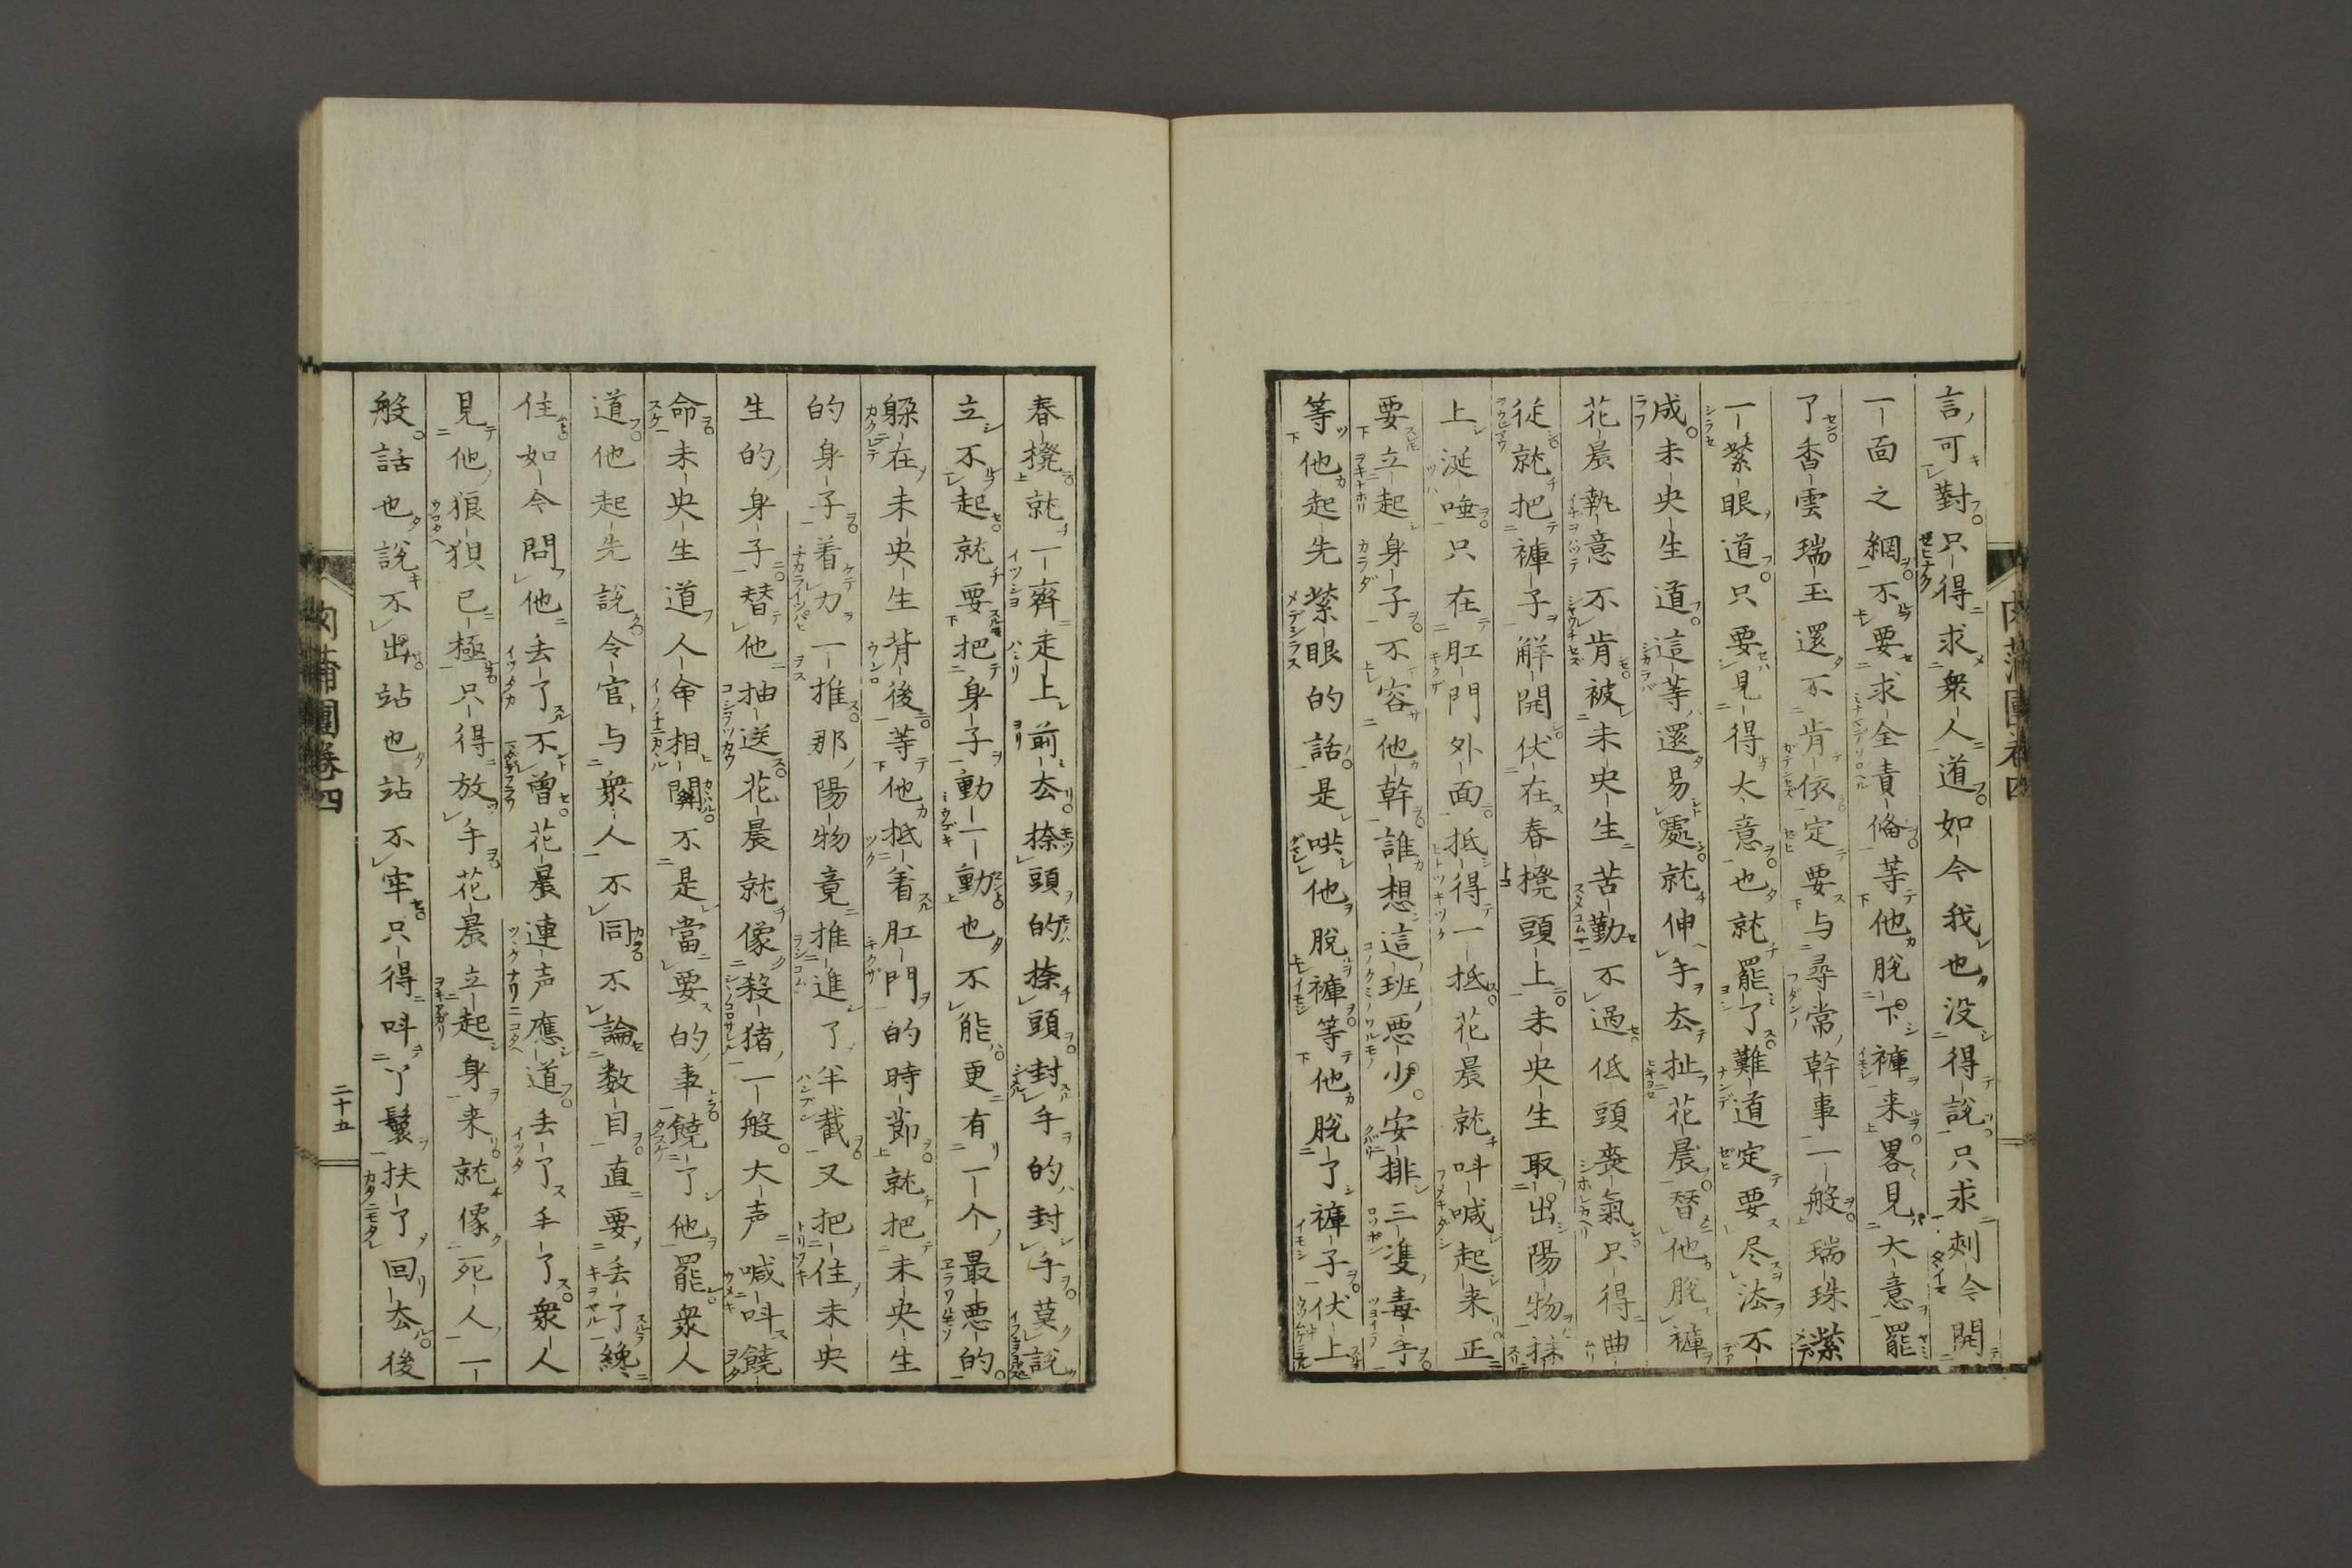 言可對只得求衆人道如今我也没得說只求刺令開
一面之網不要求全責俻等他脫下褲来畧見大意罷
了香雲瑞玉還不肯依定要与尋常幹事一般瑞珠
一紫眼道只要見得大意也就罷了難道定要尽法不
成未央生道這等還易處就伸手去扯花晨替他脫褲
花晨執意不肯被未央生苦勤不過低頭喪氣只得曲
従就把褲子解開伏在春櫈頭上未央生取出陽物抹
上涎唾只在肛門外面抵得一抵花晨就呌喊起来正
要立起身子不容他幹誰想這班悪少安排三隻毒手
等他起先紫眼的話是哄他脫褲等他脫了褲子伏上
春櫈就一齊走上前去捺頭的捺頭封手的封手莫說
立不起就要把身子動一動也不能更有一个最悪的
躱在未央生背後等他抵着肛門的時節就把未央生
的身子着力一推那陽物竟推進了半截又把住未央
生的身子替他抽送花晨就像殺猪一般大声喊呌饒
命未央生道人命相関不是當要的事饒了他罷衆人
道他起先說令官与衆人不同不論数目直要丢了纔
住如今問他丢了不曽花晨連声應道丢了丢了衆人
見他狼狽已極只得放手花晨立起身来就像死人一
般話也說不出站也站不牢只得呌丫鬟扶了回去後
肉蒲團卷四
二十五
肉蒲團卷四